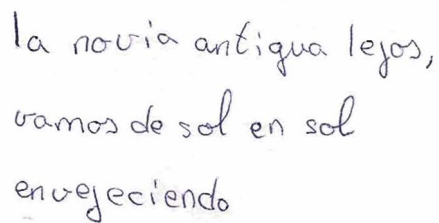 la novia antigua lejos,
vamos de sol en sol
envejeciendo